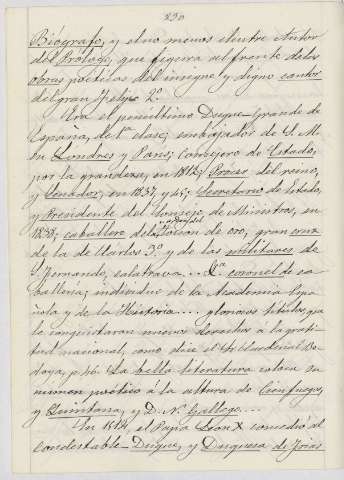 230
Biógrafo, y el no menos ilustre Autor
del Prólogo, que figura al frente de las
obras poéticas del insigne y digno cantor
del gran Felipe 2º.
Era el penúltimo Duque Grande de
España, de 1ª clase; embajador de S. M.
en Londres y Paris; Consejero de Estado,
por la grandeza, en 1812; Prócer del reino,
y Senador, en 1837, y 45; Secretario de Estado,
y Presidente del Consejo, de Ministros, en
1838; caballero del Toison de oro; gran cruz
de la de Carlos 3º, y de las militares de
S. Fernando, calatrava... &ª coronel de ca-
ballería; individuo de la Academia Espa-
ñola y de la Historia... gloriosos títulos, que
le conquistaron nuevos derechos á la grati-
tud nacional, como dice el Sr. Cardenal Bo-
doya, p. 46. La bella literatura coloca su
numen poético á la altura de Cienfuegos,
y Quintana, y D. N. Gallego....
En 1514, el Papa Leon X concedió al
condestable—Duque, y Duquesa de Frias